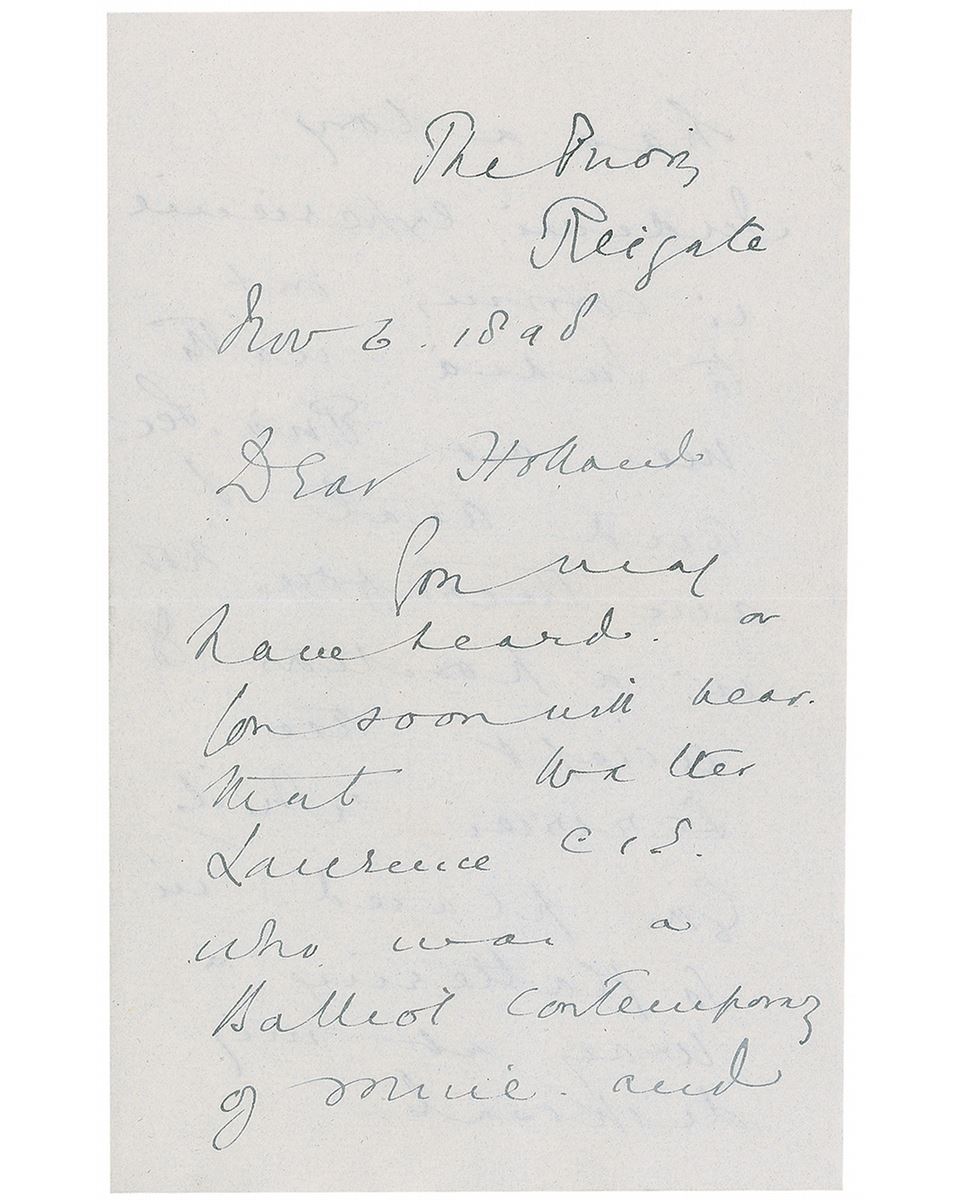 The Priory
Reigate
Nov 6. 1898
Dear Holland
You may
have heard. or
you soon will hear.
that Walter
Lawrence C.I.S.
who was a
Balliol contemporary
of mine. and